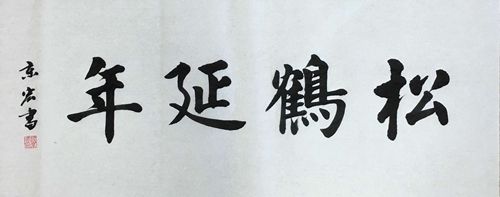 松鶴延年
京宏書